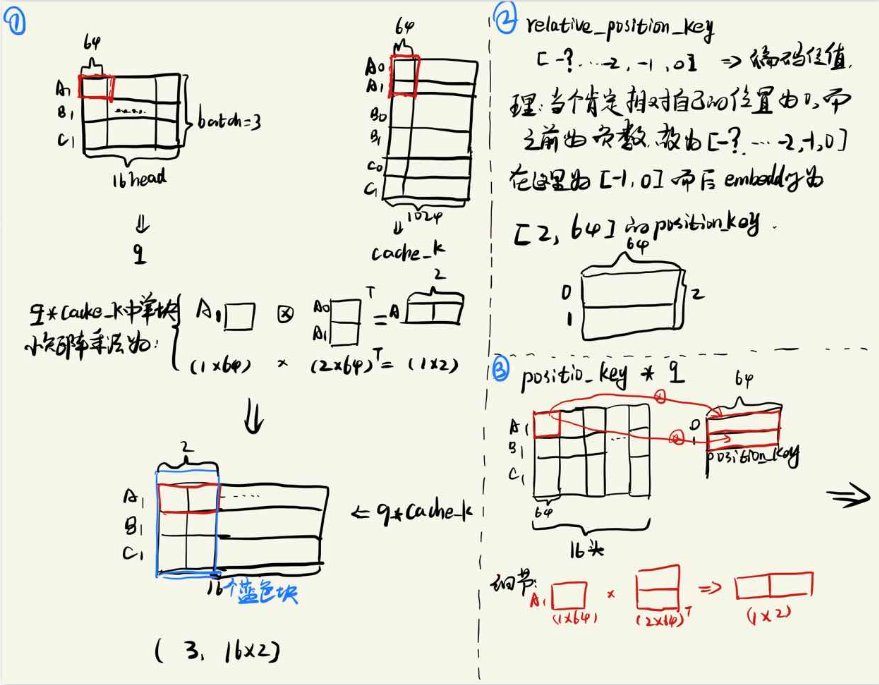 ①
64
A₁
B₁
C₁
batch=3
16head
⇓
q
64
A0
A1
B0
B1
C0
C1
1024
cache_k
q*cache_k中单块
小矩阵乘法为:
A₁ ⊗ A0 A1 T = A 2
(1×64) × (2×64)ᵀ = (1×2)
2
A₁
B₁
C₁
⇐ q*cache_k
16个蓝色块
( 3, 16×2)
② relative_position_key
[-?...-2,-1,0] ⇒ 编码位值.
理:当个肯定相对自己的位置为0,而
之前为负数,故为[-?...-2,-1,0]
在这里为[-1,0]而后embedding为
[2, 64]的position_key.
64
0
1
2
③ positio_key * q
64
A₁
B₁
C₁
0
1
position_key
64
16头
细节:
A₁ × ⇒
(1×64) (2×64)ᵀ (1×2)